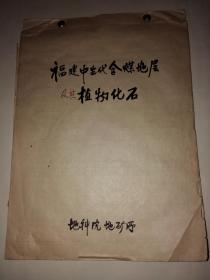 福建中生代含煤地层
及其植物化石
地科院地矿所